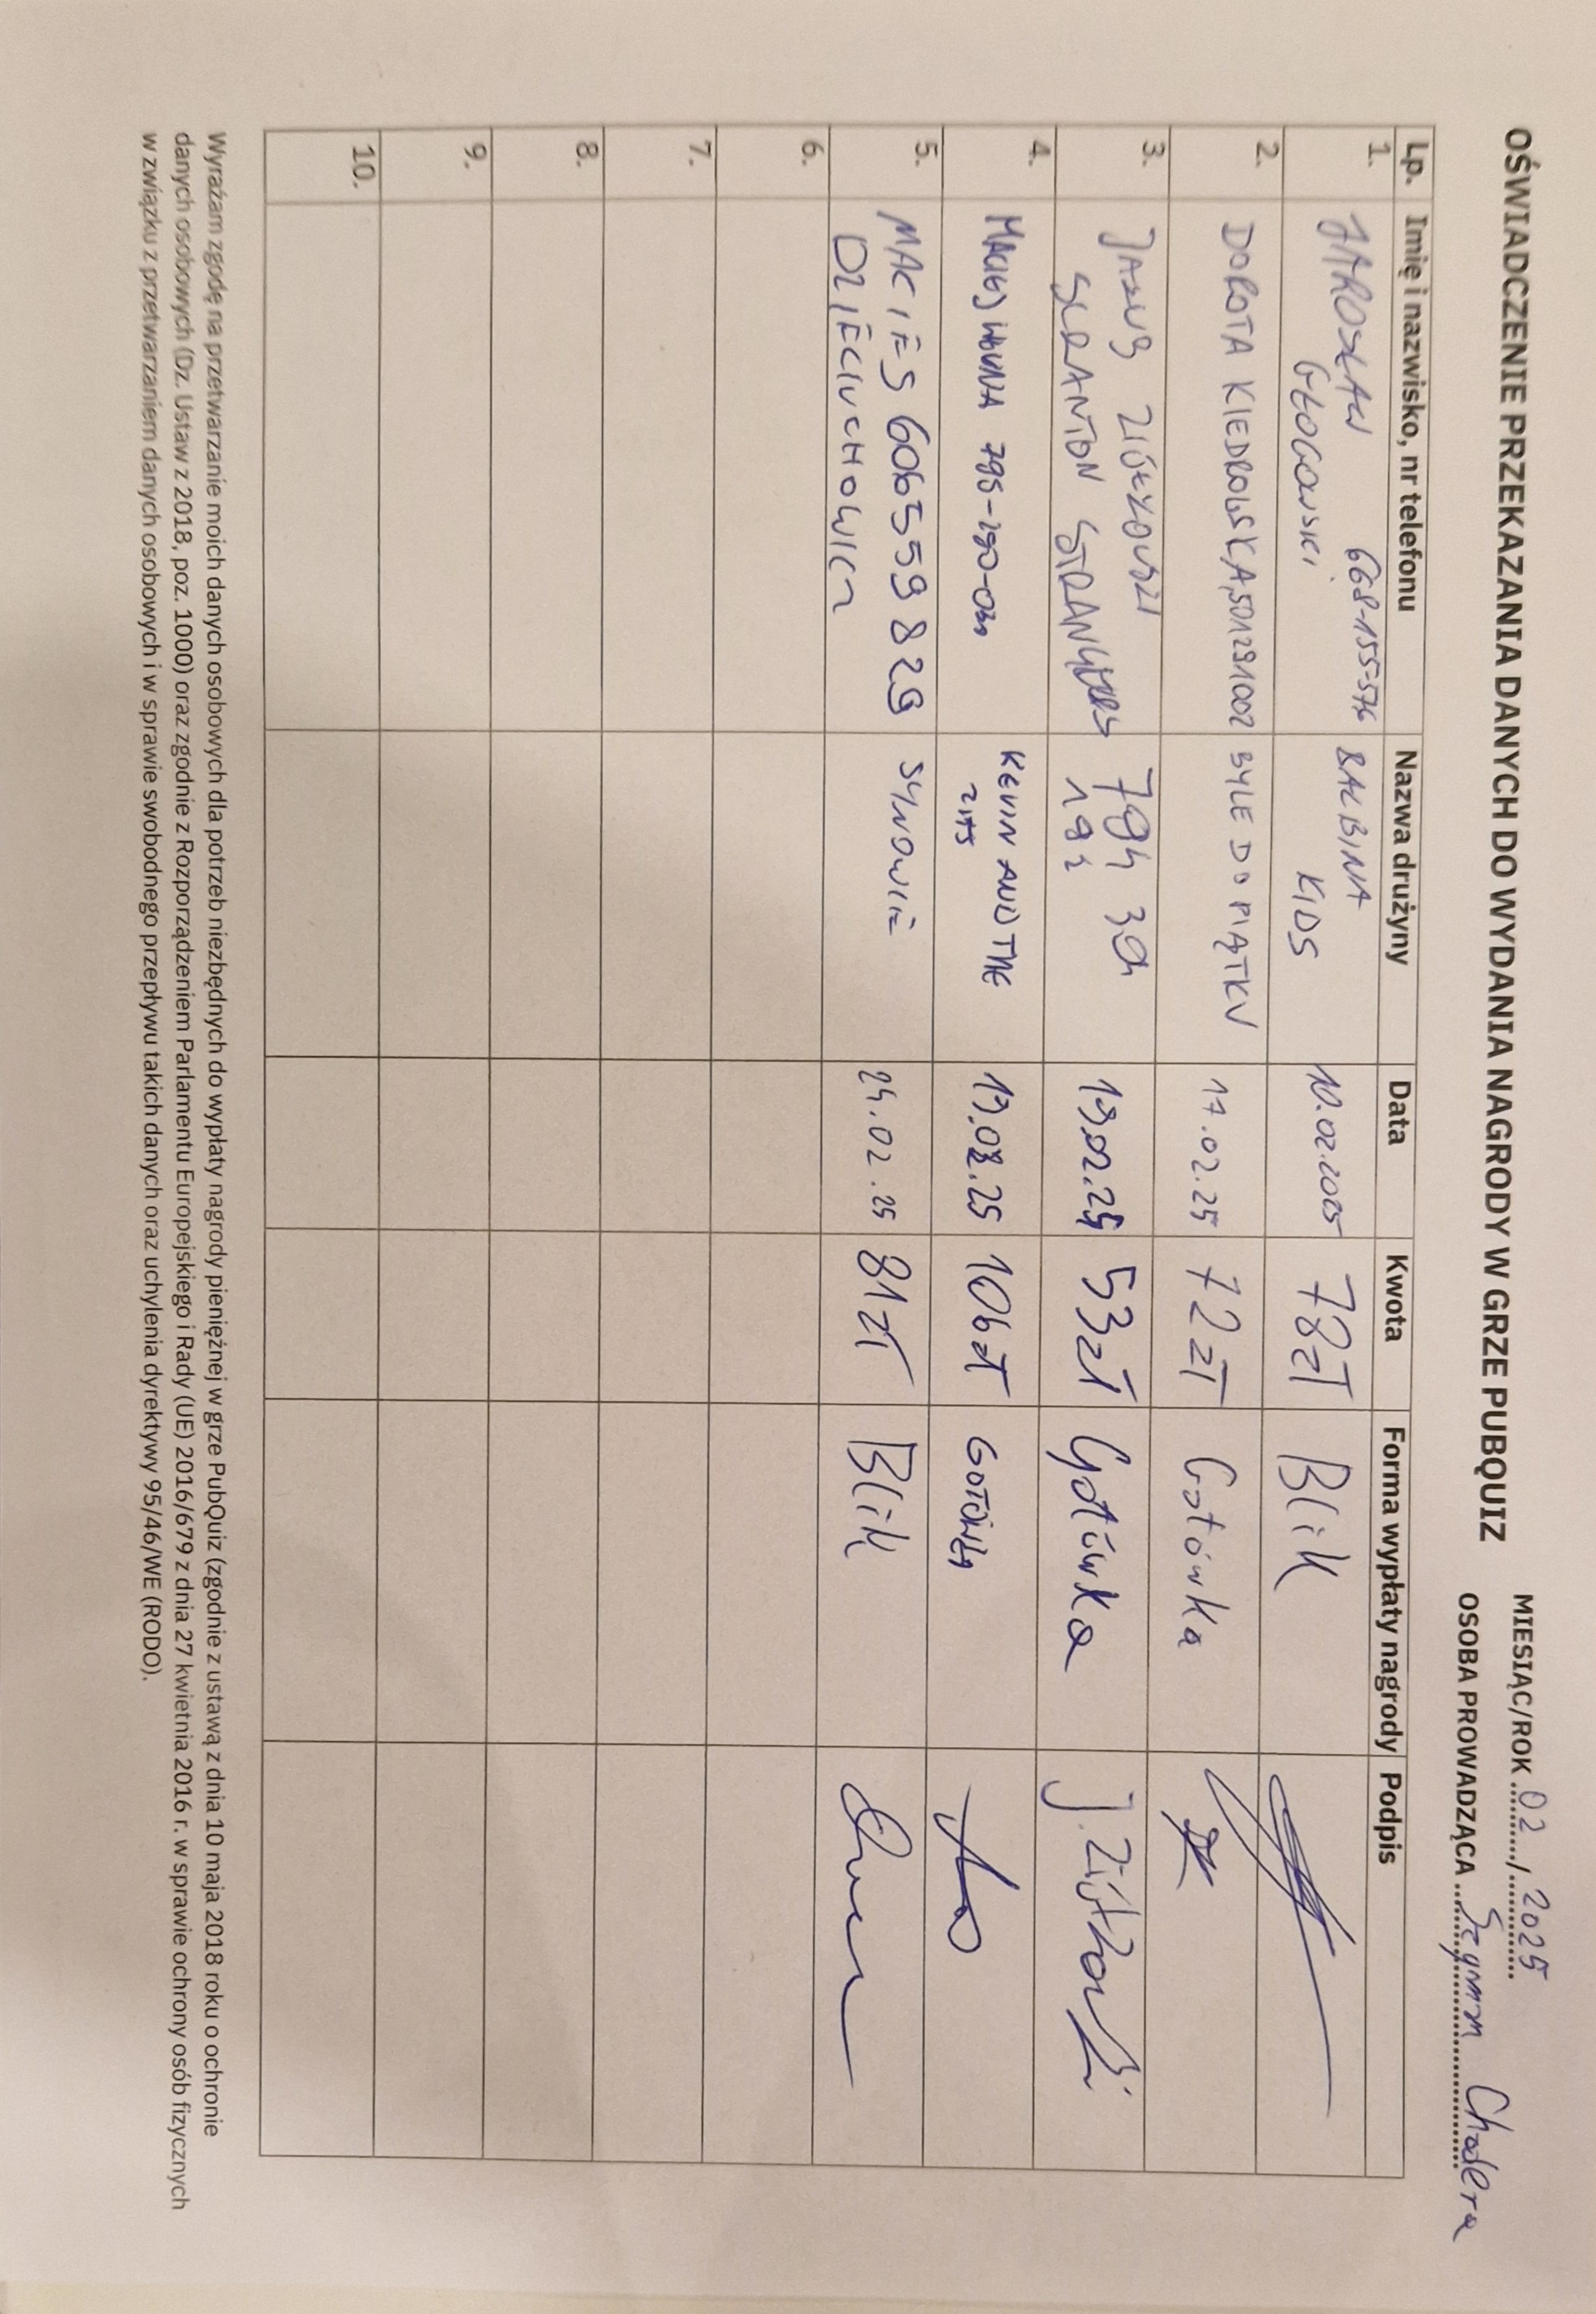 OŚWIADCZENIE PRZEKAZANIA DANYCH DO WYDANIA NAGRODY W GRZE PUBQUIZ
MIESIĄC/ROK ..02.../..2025
OSOBA PROWADZĄCA ... Chodera
Lp. Imię i nazwisko, nr telefonu Nazwa drużyny Data Kwota Forma wypłaty nagrody Podpis
1. JAROSŁAW 668-155-576 BALBINA 10.02.2025 78zł Blik
GŁOGOWSKI KIDS
2. DOROTA KIEDROWSKA, 501291002 BYLE DO PIĄTKU 17.02.25 72 zł Gotówka DK
3. JANUS ZIÓŁKOWSKI 794 394 19.02.25 53zł Gotówka J. Ziółkowski
SCRANTON STRANGLERS 192
4. MACIEJ 795-290-030 KEVIN AND THE 19.02.25 106zł GOTÓWKA
ZITS
5. MACIEJ 606559829 SYNOWIE 24.02.25 81zł Blik
DZIECIUCHOWICZ
6.
7.
8.
9.
10.
Wyrażam zgodę na przetwarzanie moich danych osobowych dla potrzeb niezbędnych do wypłaty nagrody pieniężnej w grze PubQuiz (zgodnie z ustawą z dnia 10 maja 2018 roku o ochronie
danych osobowych (Dz. Ustaw z 2018, poz. 1000) oraz zgodnie z Rozporządzeniem Parlamentu Europejskiego i Rady (UE) 2016/679 z dnia 27 kwietnia 2016 r. w sprawie ochrony osób fizycznych
w związku z przetwarzaniem danych osobowych i w sprawie swobodnego przepływu takich danych oraz uchylenia dyrektywy 95/46/WE (RODO).